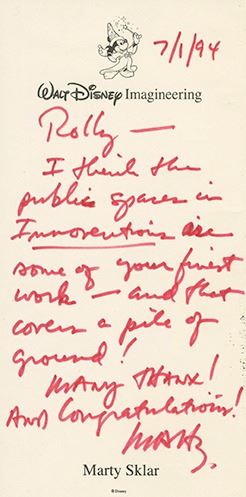 7/1/94
Walt Disney Imagineering
Rolly —
I think the
public spaces in
Innoventions are
some of your finest
work — and that
covers a pile of
ground!
Many thanx!
And Congratulations!
Marty.
Marty Sklar
© Disney